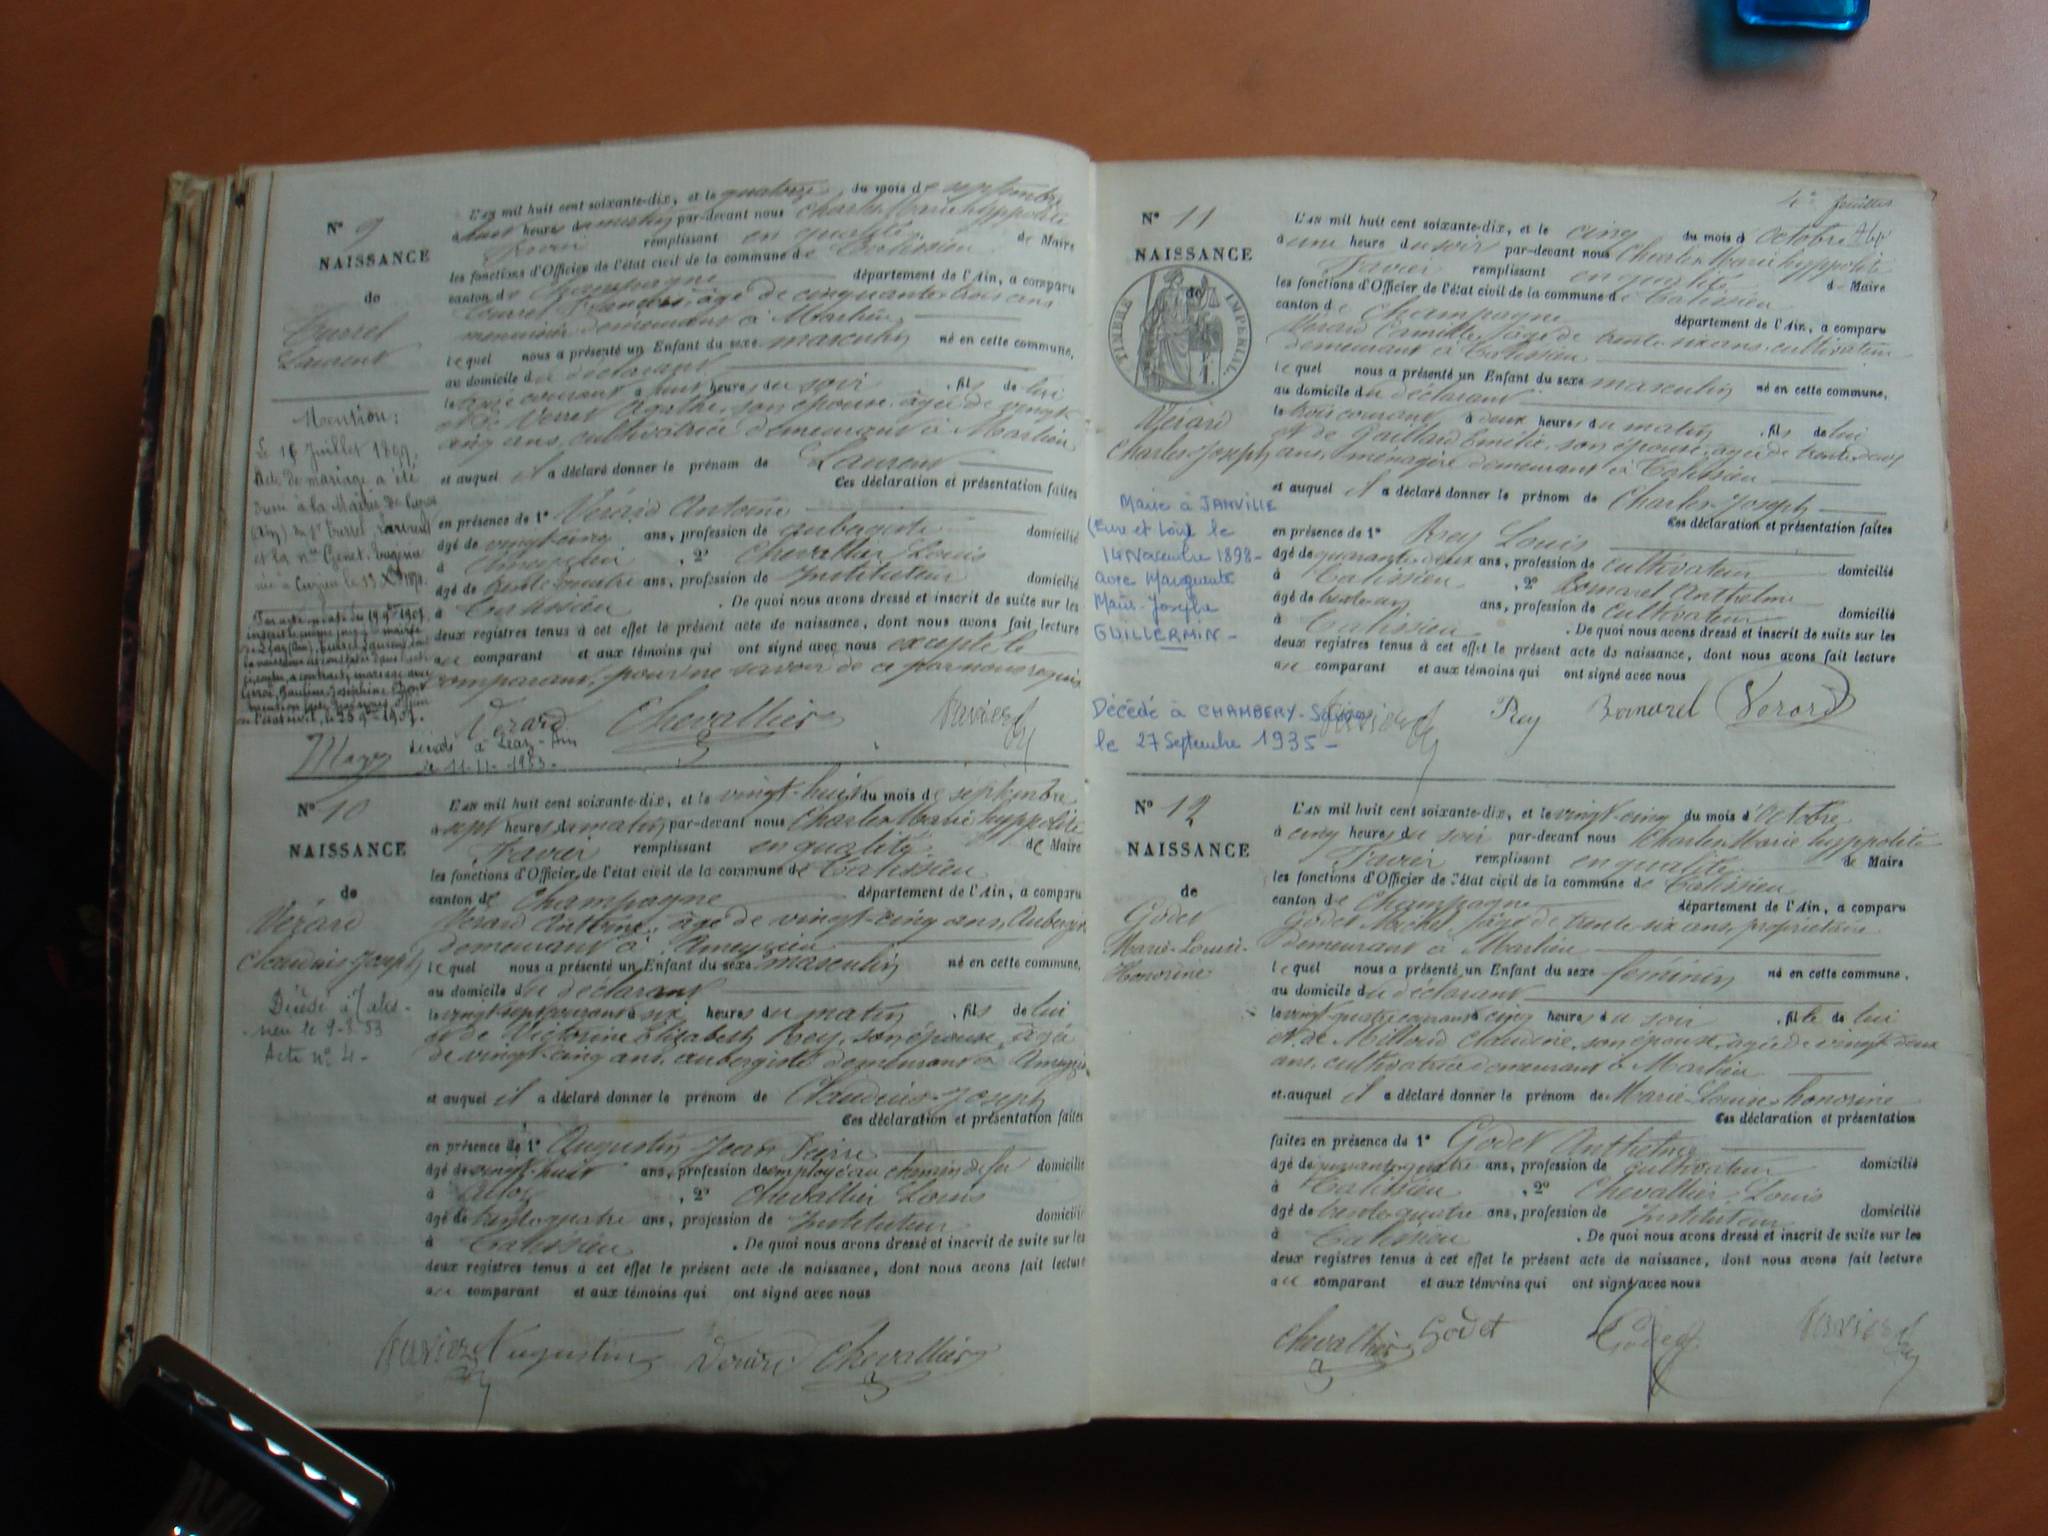 N° 9
NAISSANCE
de
Turrel
Laurent
Mention:
Le 16 Juillet 1897
Acte de mariage a été
à la Mairie de
(Ain) du Sr Turrel, Laurent
et la nlle Genet, Eugénie
née à Cuzieu le 13
L'an mil huit cent soixante-dix, et le quatorze du mois de septembre
à huit heures du matin par-devant nous Charles Marie hyppolite
Favier remplissant en qualité de Maire
les fonctions d'Officier de l'état civil de la commune de Talissieu
canton de Champagne département de l'Ain, a comparu
Turrel François, âgé de cinquante trois ans
menuisier demeurant à Marlieu
lequel nous a présenté un Enfant du sexe masculin né en cette commune,
au domicile du déclarant
le onze courant à huit heures du soir, fils de lui
et de Verret Agathe, son épouse, âgée de vingt
cinq ans, cultivatrice demeurant à Marlieu
et auquel il a déclaré donner le prénom de Laurent
Ces déclaration et présentation faites
en présence de 1° Vérard Antoine
âgé de vingt-cinq ans, profession de aubergiste domicilié
à Ameyzieu, 2° Chevallier Louis
âgé de trente quatre ans, profession de Instituteur domicilié
à Talissieu. De quoi nous avons dressé et inscrit de suite sur les
deux registres tenus à cet effet le présent acte de naissance, dont nous avons fait lecture
au comparant et aux témoins qui ont signé avec nous excepté le
comparant, pour ne savoir de ce par nous requis
Verard Chevallier Favier
décédé à Léaz - Ain
le 11-11-1953-
N° 10
NAISSANCE
de
Vérard
Claudius-Joseph
Décédé à Talis-
-sieu le 9-3 53
Acte n° 4-
L'an mil huit cent soixante-dix, et le vingt-huit du mois de septembre
à sept heures du matin par-devant nous Charles Marie hyppolite
Favier remplissant en qualité de Maire
les fonctions d'Officier de l'état civil de la commune de Talissieu
canton de Champagne département de l'Ain, a comparu
Vérard Antoine, âgé de vingt-cinq ans, Aubergiste
demeurant à Ameyzieu
lequel nous a présenté un Enfant du sexe masculin né en cette commune,
au domicile du déclarant
le vingt-sept courant à six heures du matin, fils de lui
et de Victorine Elizabeth Rey, son épouse, âgée
de vingt-cinq ans, aubergiste demeurant à Ameyzieu
et auquel il a déclaré donner le prénom de Claudius-Joseph
Ces déclaration et présentation faites
en présence de 1° Augustin Jean Pierre
âgé de vingt-huit ans, profession de employé au chemin de fer domicilié
à, 2° Chevallier Louis
âgé de trente quatre ans, profession de Instituteur domicilié
à Talissieu. De quoi nous avons dressé et inscrit de suite sur les
deux registres tenus à cet effet le présent acte de naissance, dont nous avons fait lecture
au comparant et aux témoins qui ont signé avec nous
Favier Augustin Verard Chevallier
4e feuillet
N° 11
NAISSANCE
de
TIMBRE IMPERIAL
Vérard
Charles-Joseph
Marié à JANVILLE
(Eure et Loir) le
14 Novembre 1898-
avec Marguerite
Marie-Josèphe
GUILLERMIN-
Décédé à CHAMBERY-Savoie
le 27 Septembre 1935-
L'an mil huit cent soixante-dix, et le cinq du mois d'Octobre
à une heure du soir par-devant nous Charles Marie hyppolite
Favier remplissant en qualité de Maire
les fonctions d'Officier de l'état civil de la commune de Talissieu
canton de Champagne département de l'Ain, a comparu
Vérard Camille, âgé de trente six ans, cultivateur
demeurant à Talissieu
lequel nous a présenté un Enfant du sexe masculin né en cette commune,
au domicile du déclarant
le trois courant à deux heures du matin, fils de lui
et de Gaillard Emilie, son épouse, âgée de trente deux
ans, ménagère demeurant à Talissieu
et auquel il a déclaré donner le prénom de Charles-Joseph
Ces déclaration et présentation faites
en présence de 1° Rey Louis
âgé de quarante deux ans, profession de cultivateur domicilié
à Talissieu, 2° Bornarel Anthelme
âgé de ans, profession de Cultivateur domicilié
à Talissieu. De quoi nous avons dressé et inscrit de suite sur les
deux registres tenus à cet effet le présent acte de naissance, dont nous avons fait lecture
au comparant et aux témoins qui ont signé avec nous
Favier Rey Bornarel Verard
N° 12
NAISSANCE
de
Godet
Marie-Louise-
Honorine
L'an mil huit cent soixante-dix, et le vingt-cinq du mois d'Octobre
à cinq heures du soir par-devant nous Charles Marie hyppolite
Favier remplissant en qualité de Maire
les fonctions d'Officier de l'état civil de la commune de Talissieu
canton de Champagne département de l'Ain, a comparu
Godet Michel, âgé de trente six ans, propriétaire
demeurant à Marlieu
lequel nous a présenté un Enfant du sexe féminin né en cette commune,
au domicile du déclarant
le vingt-quatre courant à cinq heures du soir, fille de lui
et de Milloud Claudine, son épouse, âgée de vingt deux
ans, cultivatrice demeurant à Marlieu
et auquel il a déclaré donner le prénom de Marie-Louise-honorine
Ces déclaration et présentation
faites en présence de 1° Godet Anthelme
âgé de quarante quatre ans, profession de cultivateur domicilié
à Talissieu, 2° Chevallier Louis
âgé de trente-quatre ans, profession de Instituteur domicilié
à Talissieu. De quoi nous avons dressé et inscrit de suite sur les
deux registres tenus à cet effet le présent acte de naissance, dont nous avons fait lecture
au comparant et aux témoins qui ont signé avec nous
Chevallier Godet Godet Favier